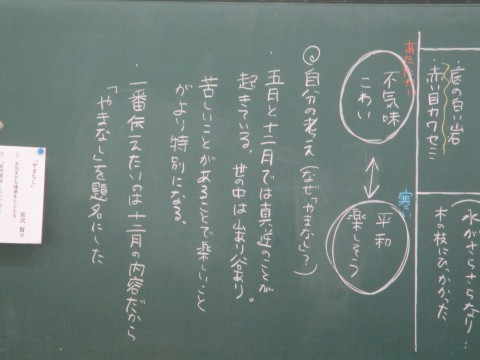 ・底の白い岩
赤い目カワセミ
水がさらさらなり…
木の枝にひっかかった
あたたかい
不気味
こわい
寒い
平和
楽しそう
◎自分の考え(なぜ「やまなし」?)
・五月と十二月では真逆のことが
起きている。世の中は山あり谷あり。
苦しいことがあることで楽しいこと
がより特別になる。
・一番伝えたいのは十二月の内容だから
「やまなし」を題名にした
「やまなし」
宮沢 賢